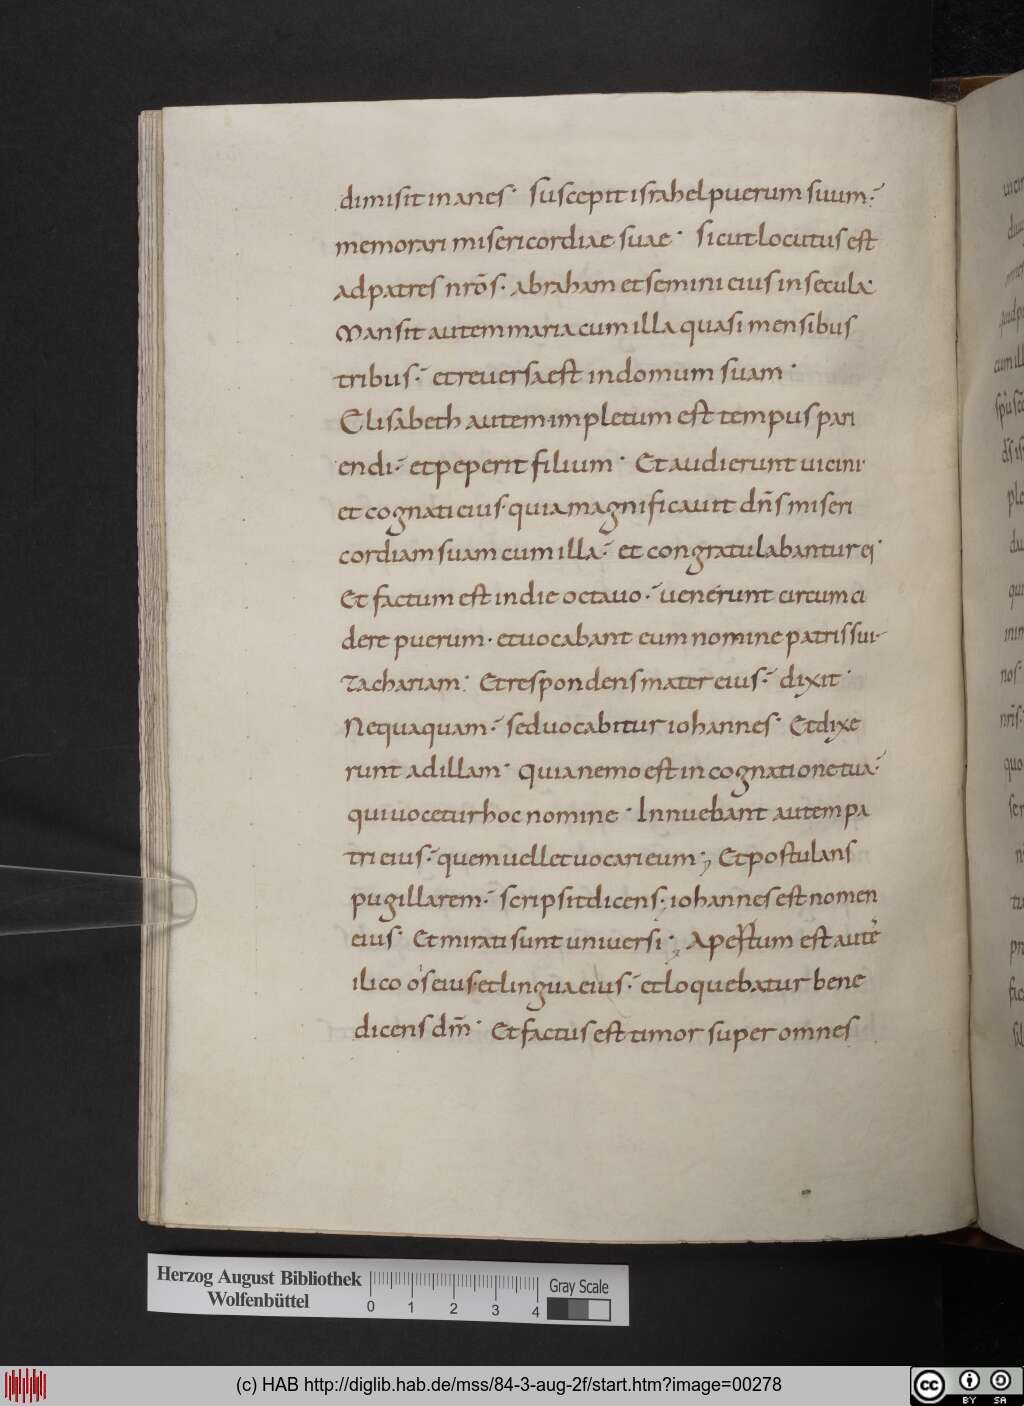 dimisit inanes· Suscepit israhel puerum suum·
memorari misericordiae suae· Sicut locutus est
ad patres nrōs· abraham et semini eius in secula·
Mansit autem maria cum illa quasi mensibus
tribus· et reuersa est in domum suam·
Elisabeth autem impletum est tempus pari
endi· et peperit filium· Et audierunt uicini
et cognati eius· quia magnificauit dn̄s miseri
cordiam suam cum illa· et congratulabantur ei·
Et factum est in die octauo· uenerunt circumci
dere puerum· et uocabant eum nomine patris sui
zachariam· Et respondens mater eius· dixit·
Nequaquam· sed uocabitur iohannes· Et dixe
runt ad illam· quia nemo est in cognatione tua·
qui uocetur hoc nomine· Innuebant autem pa
tri eius· quem uellet uocari eum; Et postulans
pugillarem· scripsit dicens· iohannes est nomen
eius· Et mirati sunt uniuersi; Apertum est autē
ilico os eius· et lingua eius· et loquebatur bene
dicens dm̄· Et factus est timor super omnes
Herzog August Bibliothek
Wolfenbüttel
0 1 2 3 4
Gray Scale
(c) HAB http://diglib.hab.de/mss/84-3-aug-2f/start.htm?image=00278
cc BY SA